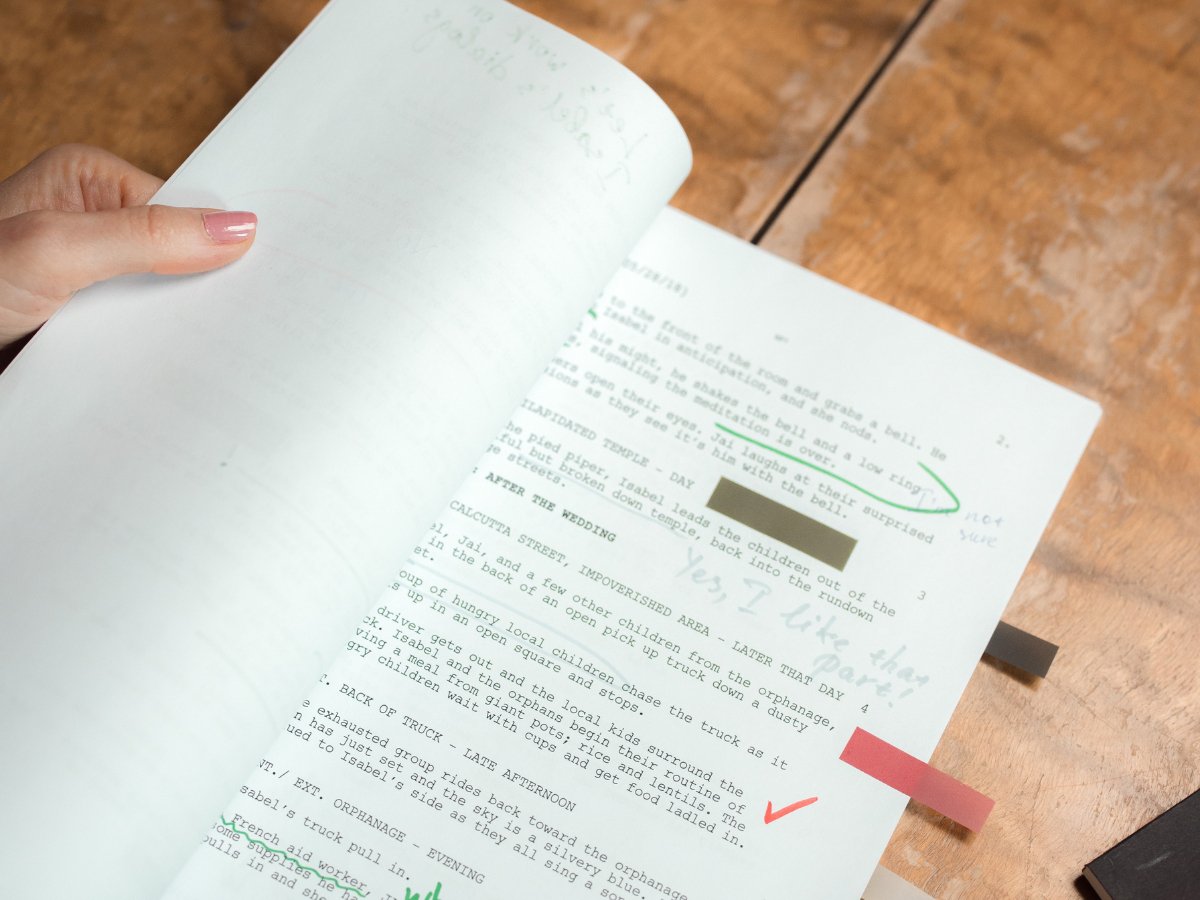 2.
to the front of the room and grabs a bell. He
Isabel in anticipation, and she nods.
his might, he shakes the bell and a low ring
signaling the meditation is over.
open their eyes. Jai laughs at their surprised
as they see it's him with the bell.
I'm not
sure
DILAPIDATED TEMPLE - DAY
3
the pied piper, Isabel leads the children out of the
but broken down temple, back into the rundown
streets.
Yes, I like that
part!
AFTER THE WEDDING
CALCUTTA STREET, IMPOVERISHED AREA - LATER THAT DAY
4
Jai, and a few other children from the orphanage,
in the back of an open pick up truck down a dusty
oup of hungry local children chase the truck as it
s up in an open square and stops.
driver gets out and the local kids surround the
ck. Isabel and the orphans begin their routine of
ving a meal from giant pots; rice and lentils. The
gry children wait with cups and get food ladled in.
T. BACK OF TRUCK - LATE AFTERNOON
e exhausted group rides back toward the orphanage
n has just set and the sky is a silvery blue.
ued to Isabel's side as they all sing a
NT./ EXT. ORPHANAGE - EVENING
sabel's truck pull in.
French aid worker,
some supplies he
pulls in and she